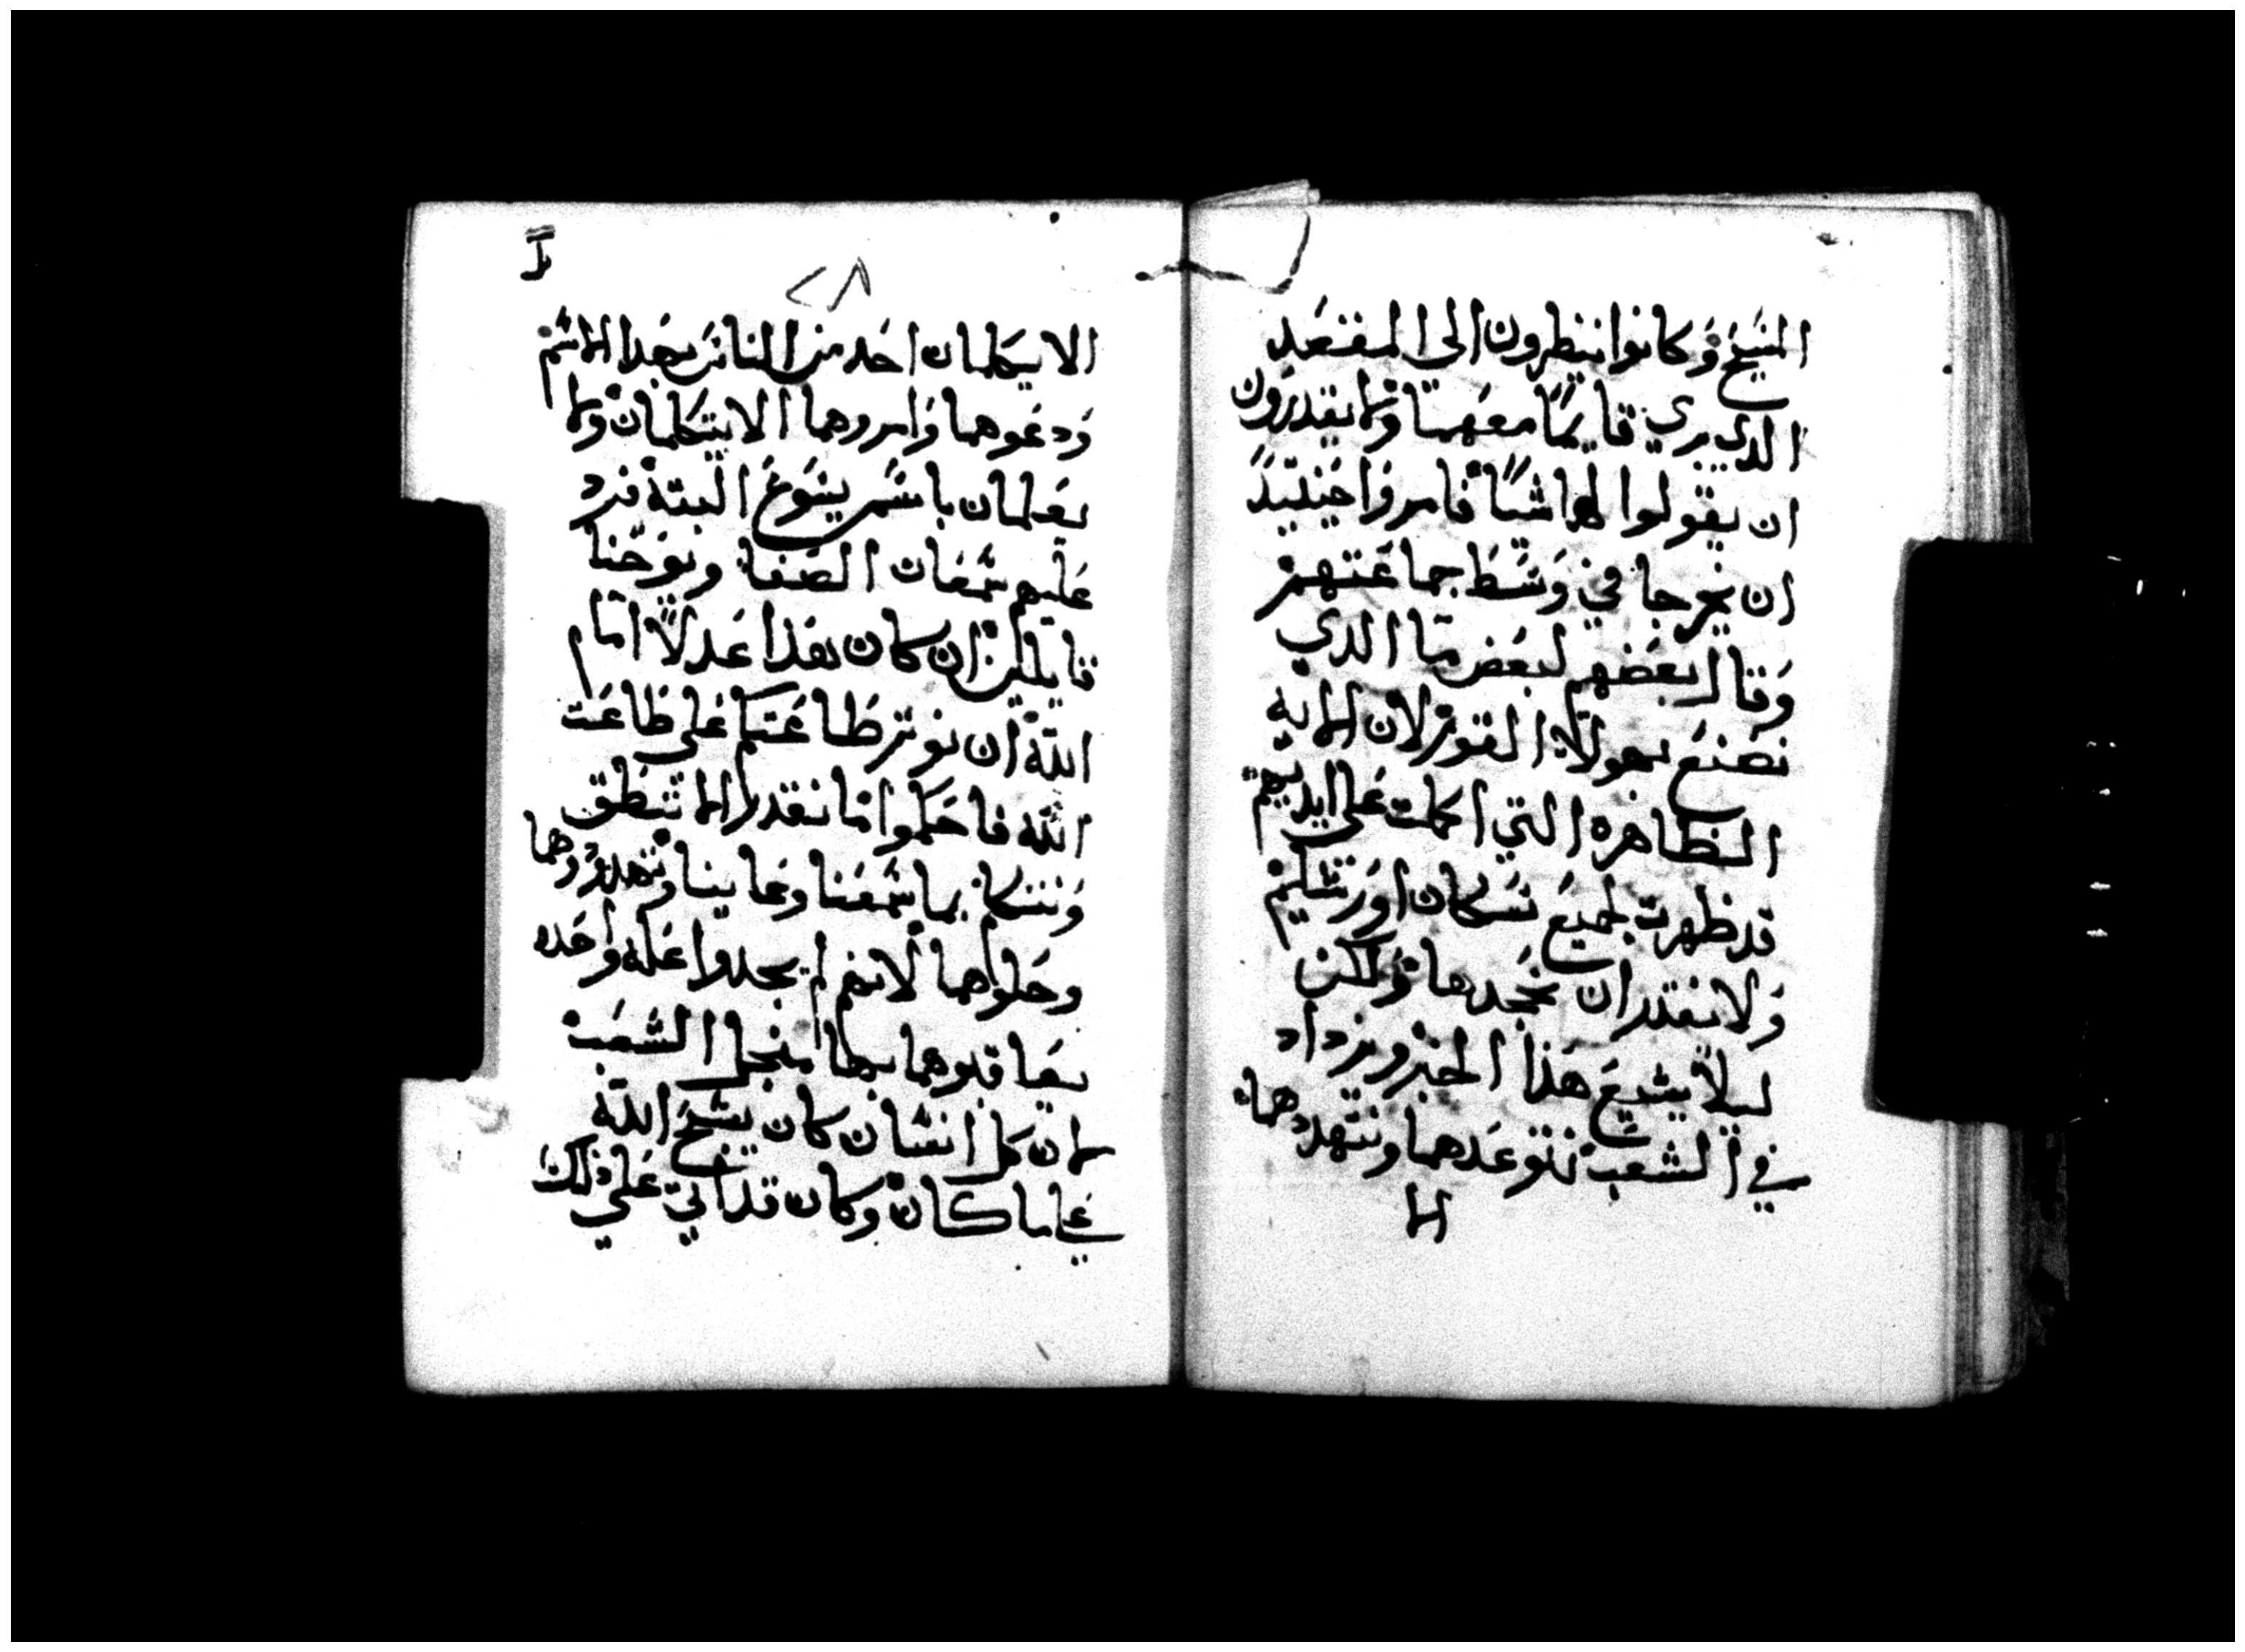 المسيح وكانوا ينظرون الى المقعد
الدي بري قايمًا معهما وما يقدرون
ان يقولوا لهما شيًا فامروا حينيد
ان يخرجا من وسط جماعتهم
وقال بعضهم لبعض ما الدي
نصنع بهولاء القوم لان الايه
الظاهره التي اكملت على ايديهم
قد ظهرت لجميع سكان اورشليم
ولا نقدر ان نجحدها ولكن
ليلا يشيع هذا الخبز ويزداد
في الشعب نتوعدهما ونتهددهما
الا
٢٨
الا يكلمان احد من الناس بهدا الاسم
ودعوهما وامروهما الا يتكلمان ولا
يعلمان باسم يسوع البته فرد
عليهم سمعان الصفا ويوحنا
قايلين ان كان هدا عدلًا امام
الله ان نوثر طاعتكم على طاعت
الله فاحكموا ما نقدر الا ننطق
ونتكلم بما سمعنا وعاينا وتهددوهما
وخلوهما لانهم لم يجدوا عله واحده
يعاقبوهما بها من اجل الشعب
لان كل انسان كان يسبح الله
على ما كان وكان قد اتى على ذلك